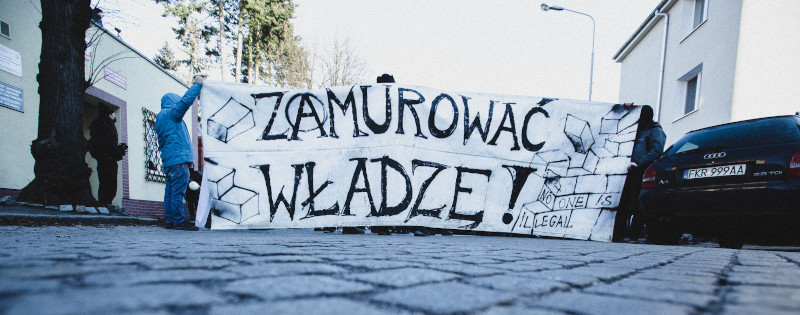 ZAMUROWAĆ
WŁADZE!
NO ONE IS
ILLEGAL
FKR 999AA
2.5 TDI